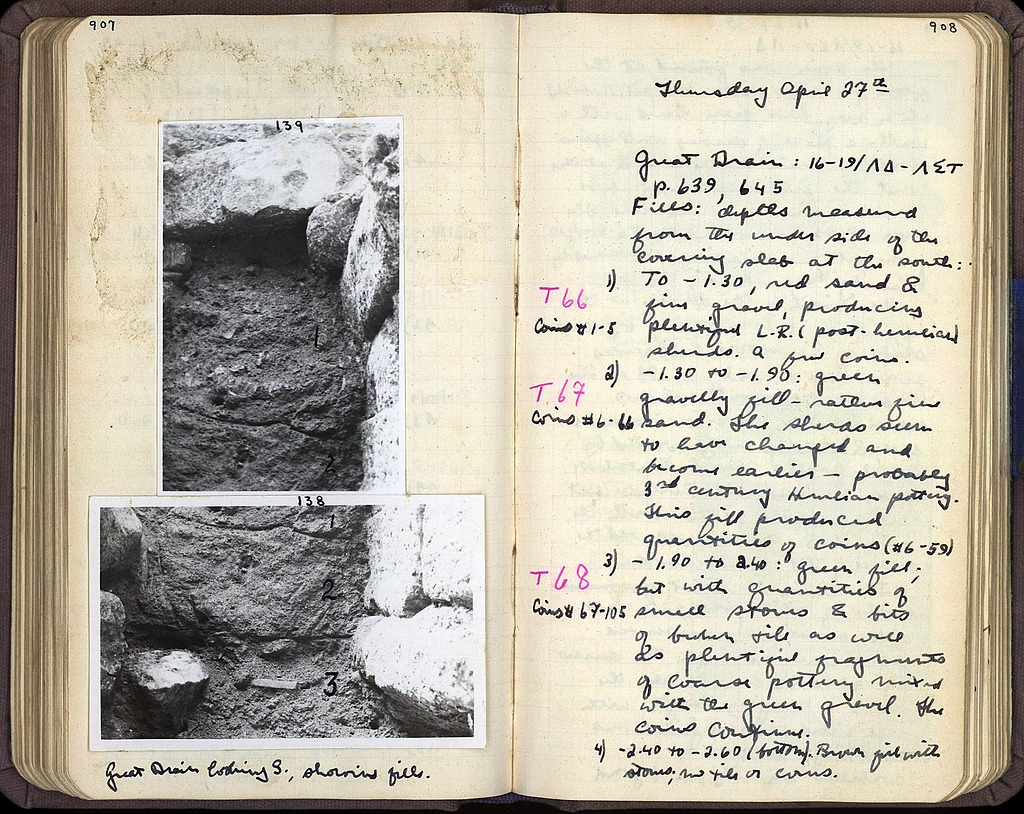 907
139
1
2
138
1
2
3
Great Drain looking S., showing fills.
908
Thursday April 27th
Great Drain : 16-19/ΛΔ-ΛΣΤ
p. 639, 645
Fills: depths measured
from the under side of the
covering slab at the south:
1) To -1.30, red sand &
T66
fine gravel, producing
Coins # 1-5
plentiful L.R. (post-herulian)
sherds. A few coins.
2) -1.30 to -1.90: green
T.67
gravelly fill - rather fine
Coins #6-66
sand. The sherds seem
to have changed and
become earlier - probably
3rd century Herulian pottery.
This fill produced
quantities of coins (#6-59)
3) -1.90 to 2.40: green fill;
T68
but with quantities of
Coins # 67-105
small stones & bits
of broken tile as well
as plentiful fragments
of coarse pottery mixed
with the green gravel. The
coins continue.
4) -2.40 to -2.60 (bottom). Brown fill with
stones; no tile or coins.